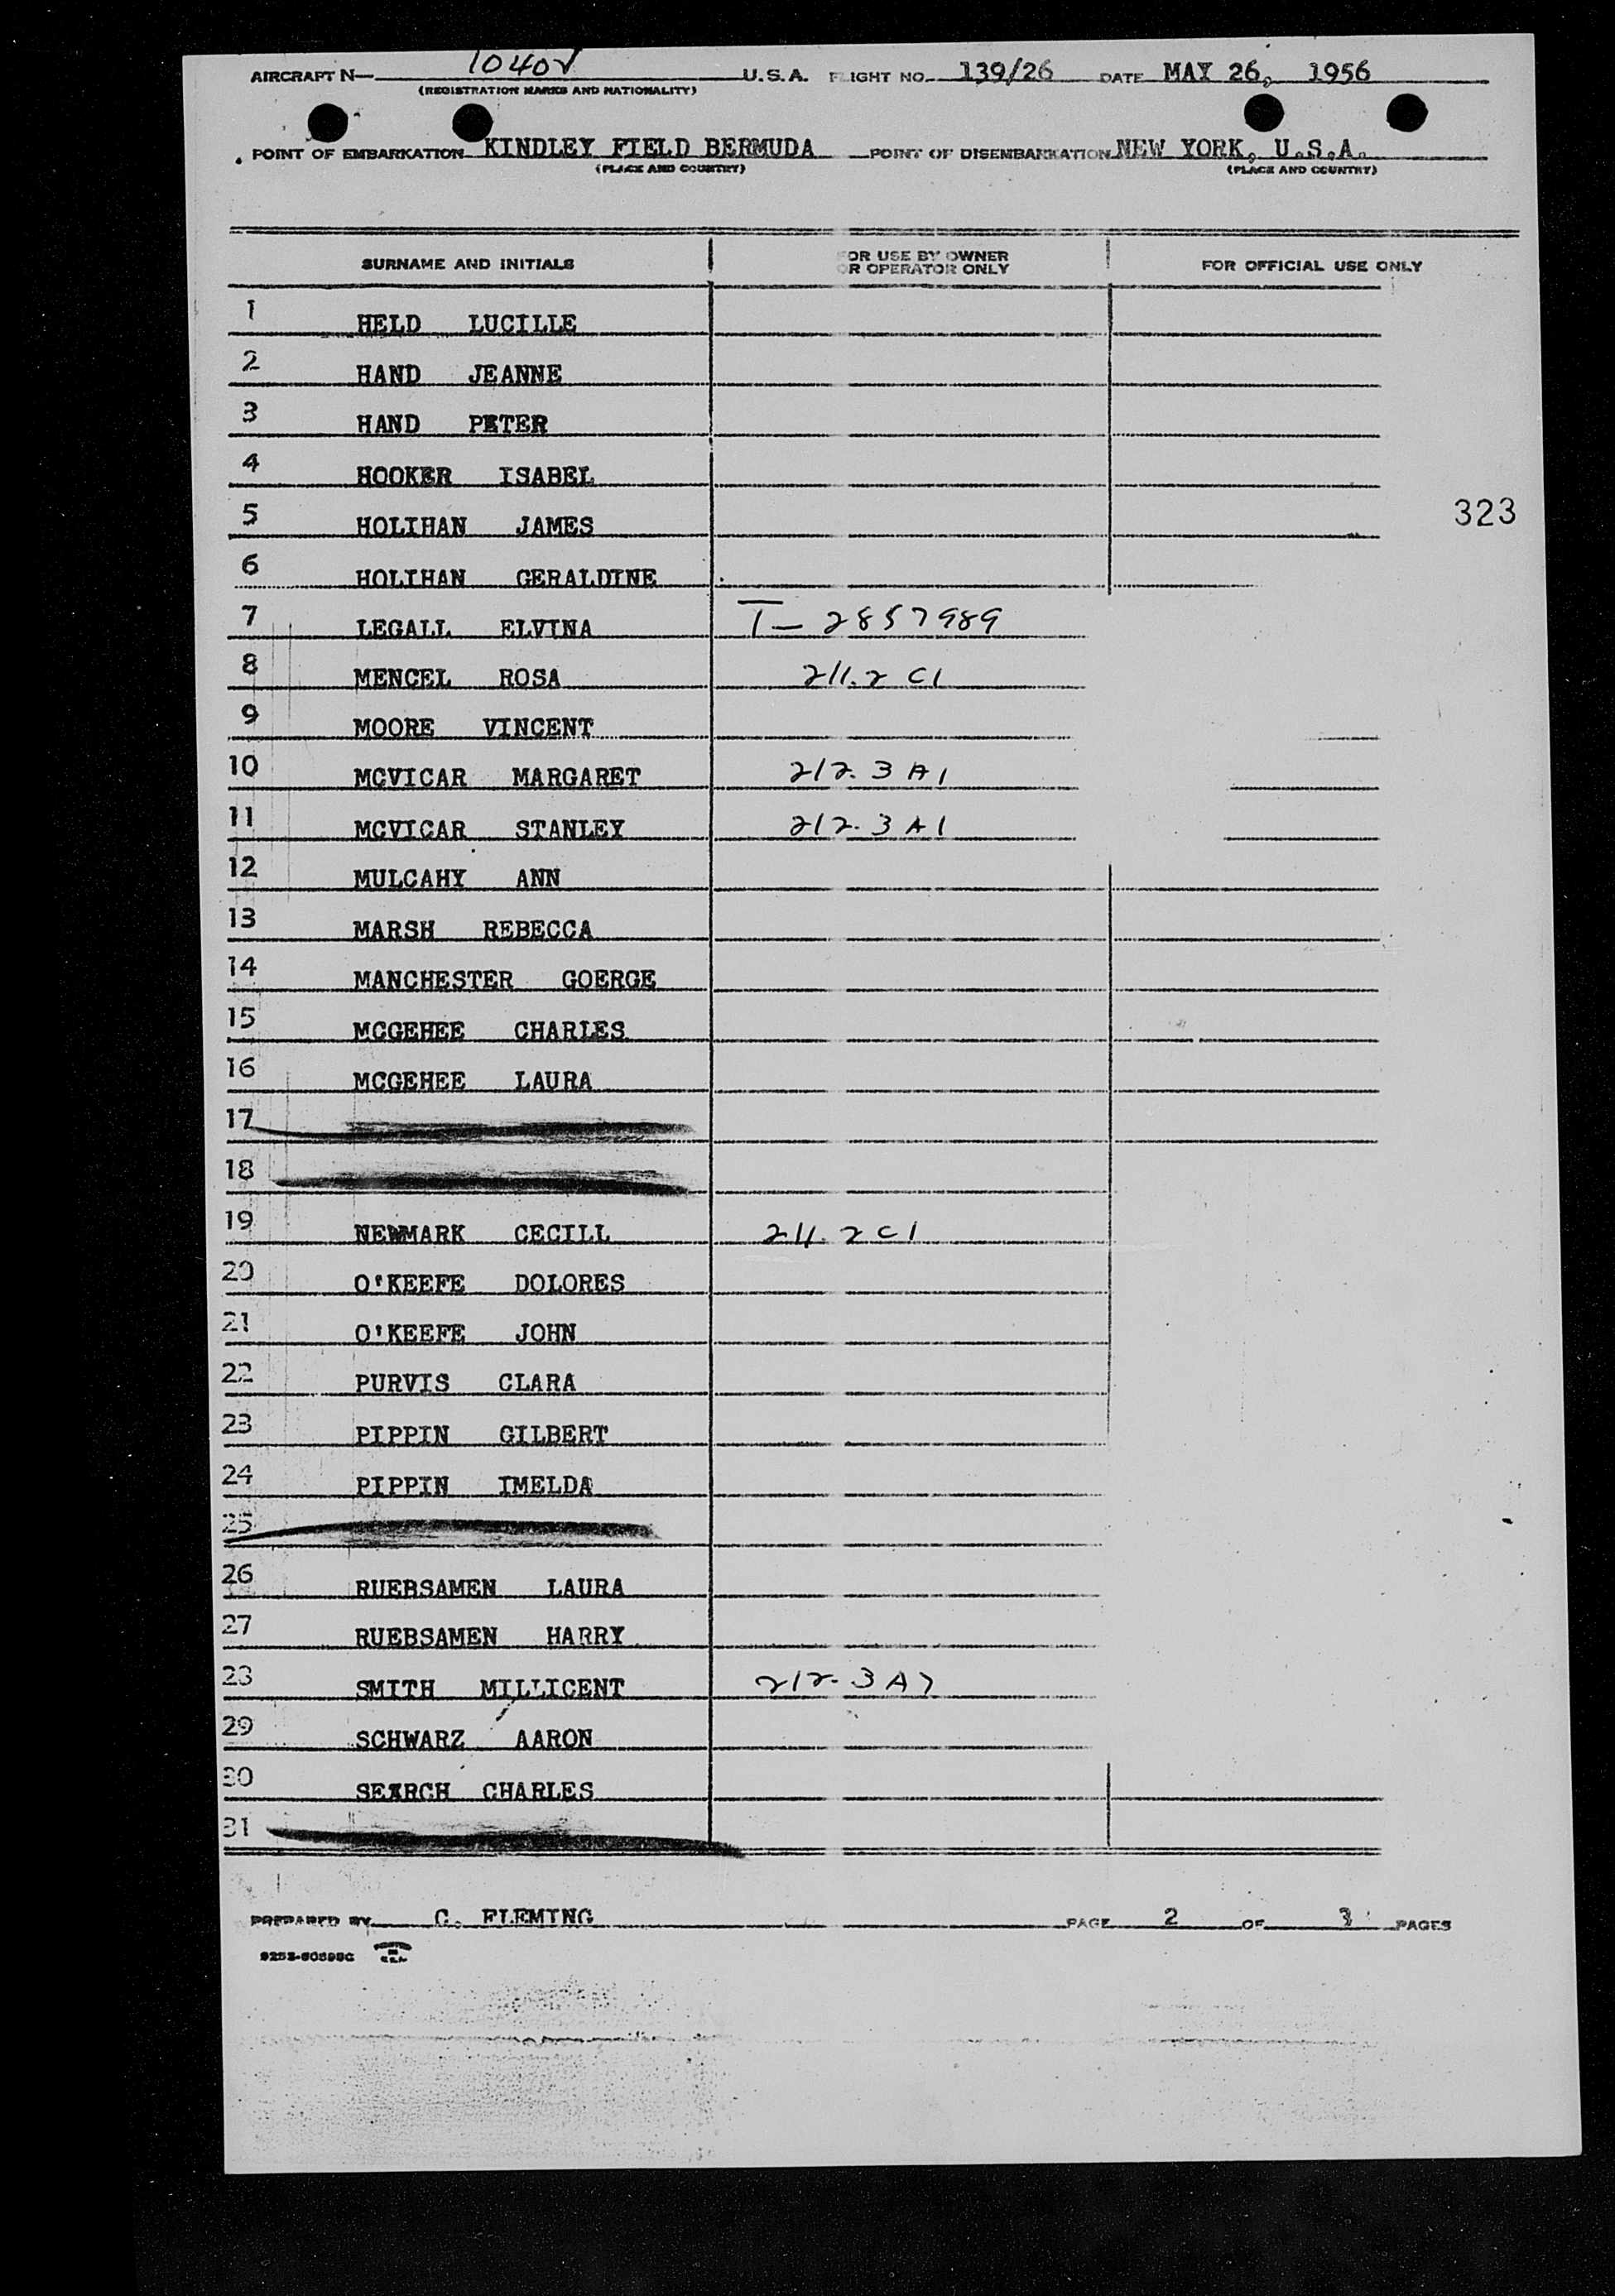 AIRCRAFT N— 1040V U.S.A. FLIGHT NO. 139/26 DATE MAY 26, 1956
(REGISTRATION MARKS AND NATIONALITY)
POINT OF EMBARKATION KINDLEY FIELD BERMUDA POINT OF DISEMBARKATION NEW YORK, U.S.A.
(PLACE AND COUNTRY) (PLACE AND COUNTRY)
SURNAME AND INITIALS FOR USE BY OWNER OR OPERATOR ONLY FOR OFFICIAL USE ONLY
1 HELD LUCILLE
2 HAND JEANNE
3 HAND PETER
4 HOOKER ISABEL
323
5 HOLIHAN JAMES
6 HOLIHAN GERALDINE
7 LEGALL ELVINA T- 2857989
8 MENCEL ROSA 211.2 C1
9 MOORE VINCENT
10 MCVICAR MARGARET 212.3 A1
11 MCVICAR STANLEY 212.3 A1
12 MULCAHY ANN
13 MARSH REBECCA
14 MANCHESTER GOERGE
15 MCGEHEE CHARLES
16 MCGEHEE LAURA
17
18
19 NEWMARK CECILL 211.2 C1
20 O'KEEFE DOLORES
21 O'KEEFE JOHN
22 PURVIS CLARA
23 PIPPIN GILBERT
24 PIPPIN IMELDA
25
26 RUEBSAMEN LAURA
27 RUEBSAMEN HARRY
28 SMITH MILLICENT 212.3 A7
29 SCHWARZ AARON
30 SEARCH CHARLES
31
PREPARED BY C. FLEMING PAGE 2 OF 3 PAGES
PRINTED IN U.S.A.